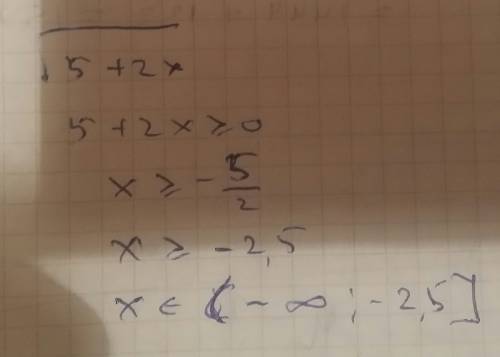 √5+2x
5+2x≥0
x≥-5/2
x≥-2,5
x∈(-∞;-2,5]